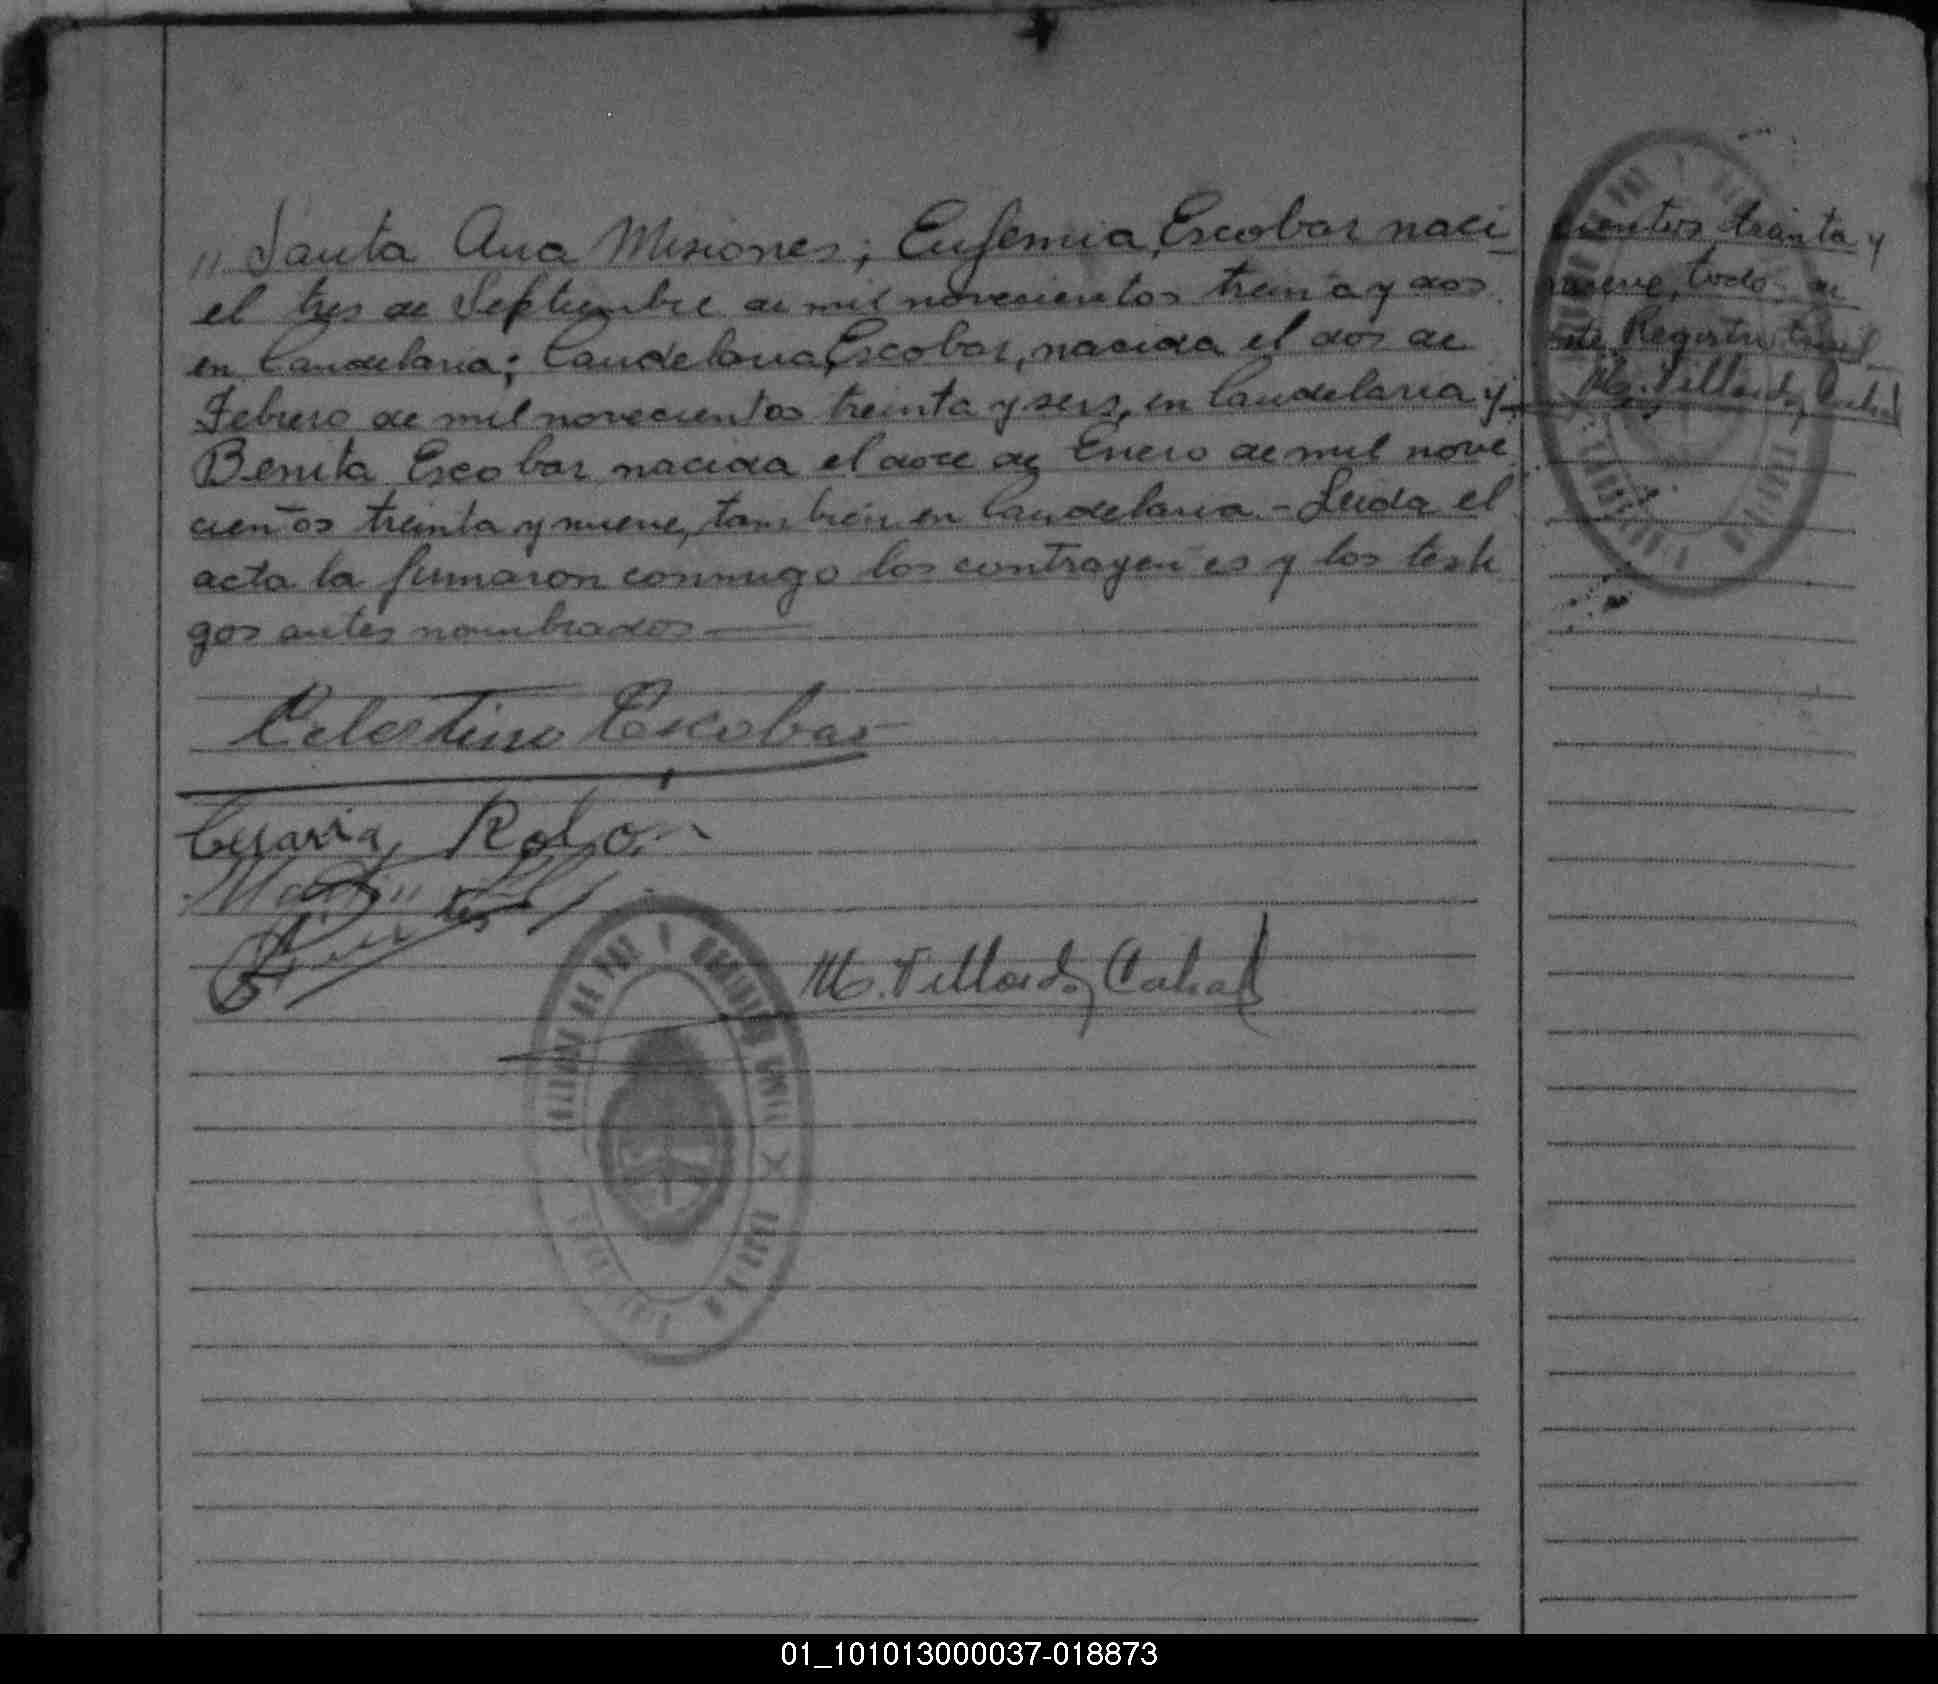 „ Santa Ana Misiones; Eufemia Escobar naci-
el tres de Septiembre de mil novecientos treinta y dos
en Candelaria; Candelaria Escobar, nacida el dos de
Febrero de mil novecientos treinta y seis, en Candelaria y
Benita Escobar nacida el doce de Enero de mil nove
cientos treinta y nueve, también en Candelaria - Leida el
acta la firmaron conmigo los contrayentes y los testi
gos antes nombrados
Celestino Escobar
Rolón
M. Villordo Cabral
cientos treinta y
nueve, todo de
este Registro Civil
M. Villordo Cabral
01_101013000037-018873